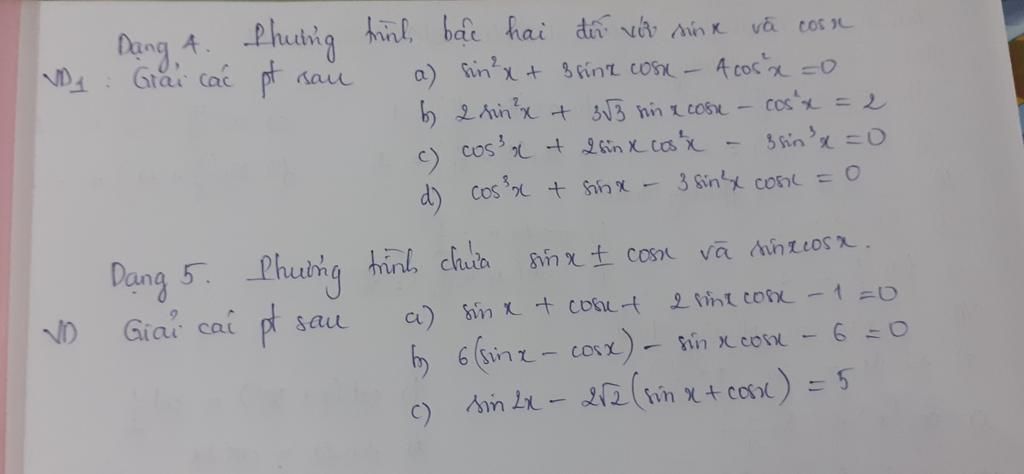 Dạng 4. Phương trình bậc hai đối với sinx và cosx
VD1: Giải các pt sau a) sin²x + 3sinx cosx - 4cos²x = 0
b) 2sin²x + 3√3 sinxcosx - cos²x = 2
c) cos³x + 2sinxcos²x - 3sin³x = 0
d) cos³x + sinx - 3sin²x cosx = 0
Dạng 5. Phương trình chứa sinx ± cosx và sinxcosx.
VD Giải các pt sau a) sinx + cosx + 2sinxcosx - 1 = 0
b) 6(sinx - cosx) - sinxcosx - 6 = 0
c) sin2x - 2√2(sinx + cosx) = 5